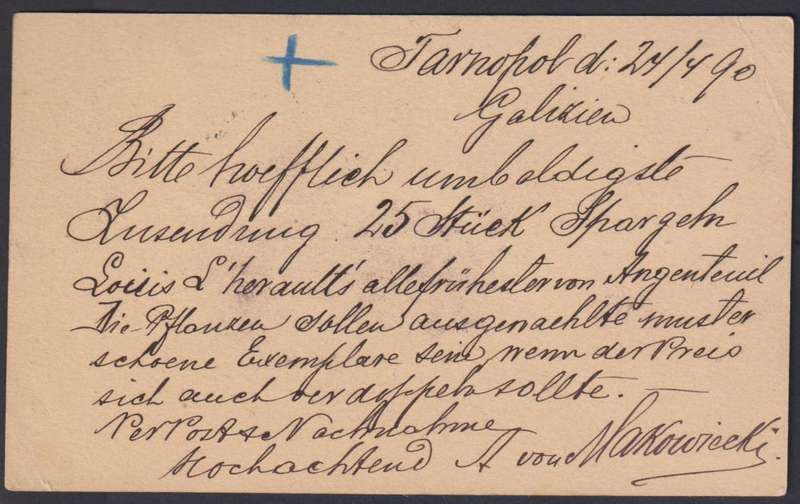 Tarnopol d: 24/4 90
Galizien
Bitte hoefflich umbeldigste
Zusendung 25 Stück Spargeln
Louis L'herault's allefrühester von Angenteuil
Die Pflanzen sollen ausgewaehlte muster
schoene Exemplare sein, wenn der Preis
sich auch verdoppeln sollte. —
Per Post & Nachnahme
Hochachtend A von Makowiecki